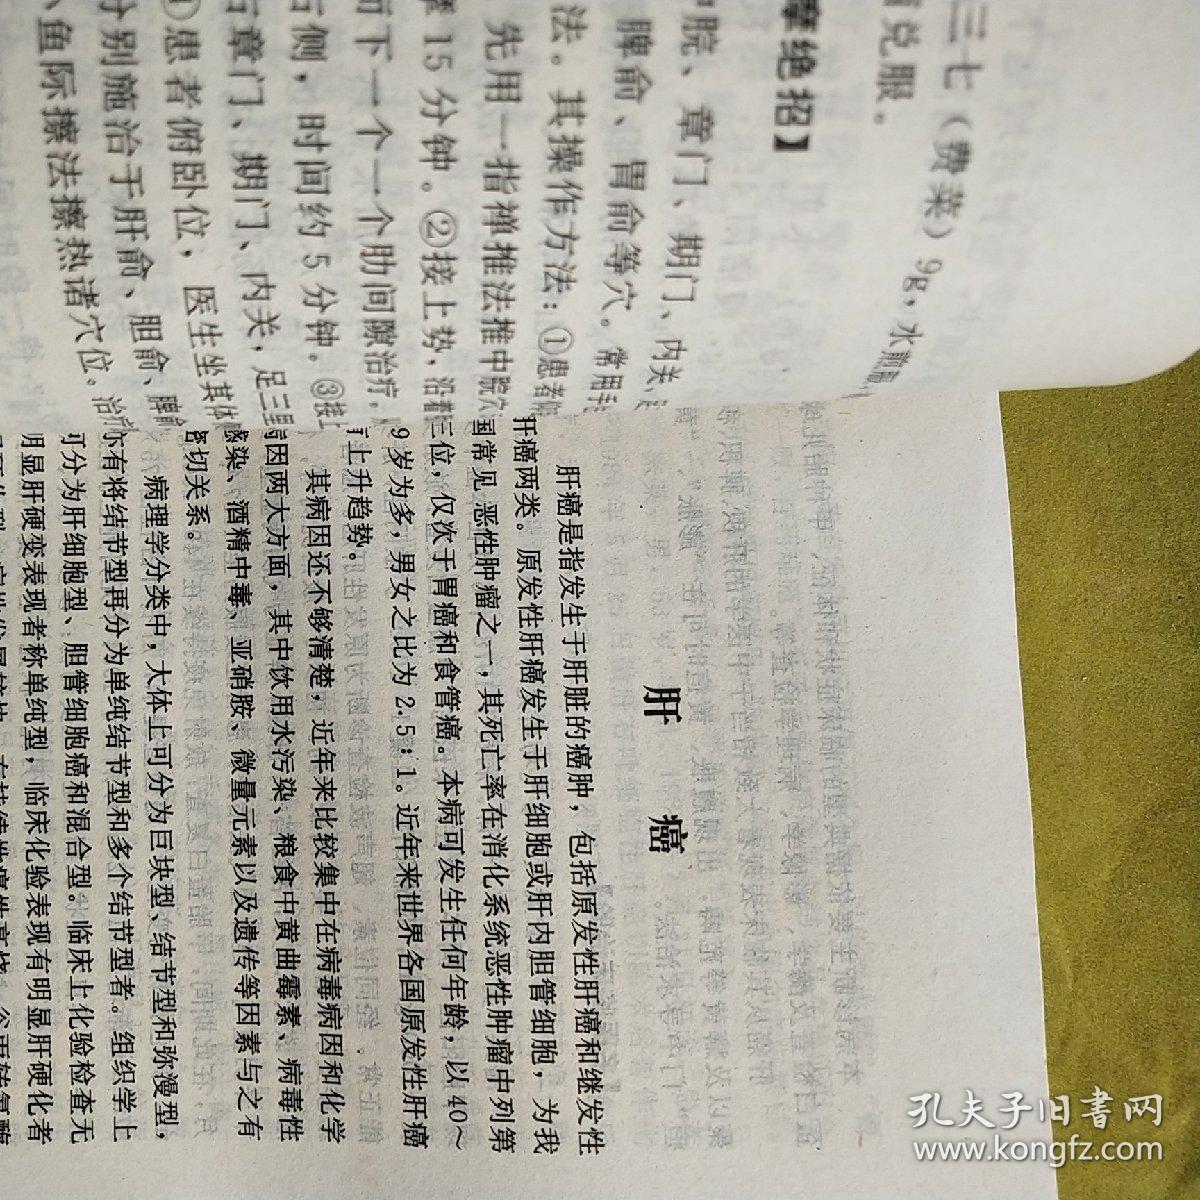 三七（费菜）9g，水
兑服。
摩绝招】
中脘、章门、期门、内关、
脾俞、胃俞等穴。常用手
法。其操作方法：①患者
先用一指禅推法推中脘穴
15分钟。②接上势，沿着
而下一个一个肋间隙治疗，
右侧，时间约5分钟。③接上
右章门、期门、内关，足三里
①患者俯卧位，医生坐其体
分别施治于肝俞、胆俞、脾俞
小鱼际擦法擦热诸穴位。治疗
肝癌
肝癌是指发生于肝脏的癌肿，包括原发性肝癌和继发性
肝癌两类。原发性肝癌发生于肝细胞或肝内胆管细胞，为我
国常见恶性肿瘤之一，其死亡率在消化系统恶性肿瘤中列第
三位，仅次于胃癌和食管癌。本病可发生任何年龄，以40～
9岁为多，男女之比为2.5：1。近年来世界各国原发性肝癌
有上升趋势。
其病因还不够清楚，近年来比较集中在病毒病因和化学
病因两大方面，其中饮用水污染、粮食中黄曲霉素、病毒性
感染、酒精中毒、亚硝胺、微量元素以及遗传等因素与之有
密切关系。
病理学分类中，大体上可分为巨块型、结节型和弥漫型，
亦有将结节型再分为单纯结节型和多个结节型者。组织学上
可分为肝细胞型、胆管细胞癌和混合型。临床上化验检查无
明显肝硬变表现者称单纯型，临床化验表现有明显肝硬化者
孔夫子旧书网
www.kongfz.com